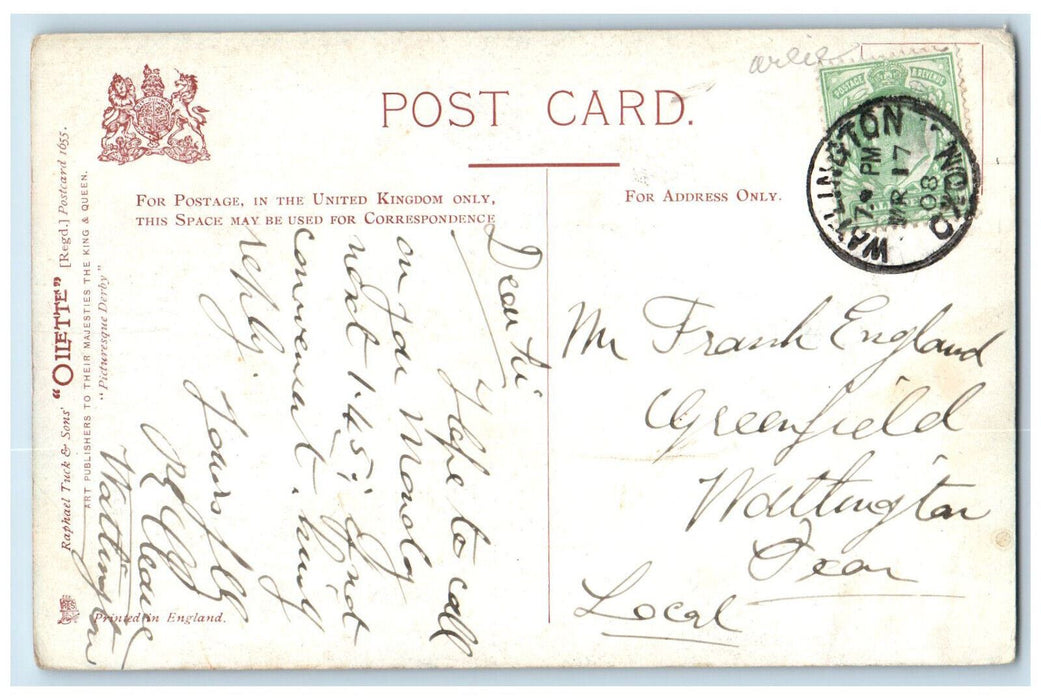 POST CARD.
FOR POSTAGE, IN THE UNITED KINGDOM ONLY,
THIS SPACE MAY BE USED FOR CORRESPONDENCE
FOR ADDRESS ONLY.
POSTAGE & REVENUE
WATLINGTON
7 PM
MR 17
08
OXON
Raphael Tuck & Sons' "OILETTE" [Regd.] Postcard 1655.
ART PUBLISHERS TO THEIR MAJESTIES THE KING & QUEEN.
"Picturesque Derby"
Printed in England.
Dear Sir
Hope to call
on you Monday
next 1.45; if not
convenient kindly
reply.
Yours
Watlington
Mr Frank England
Greenfield
Wattington
Oxon
Local